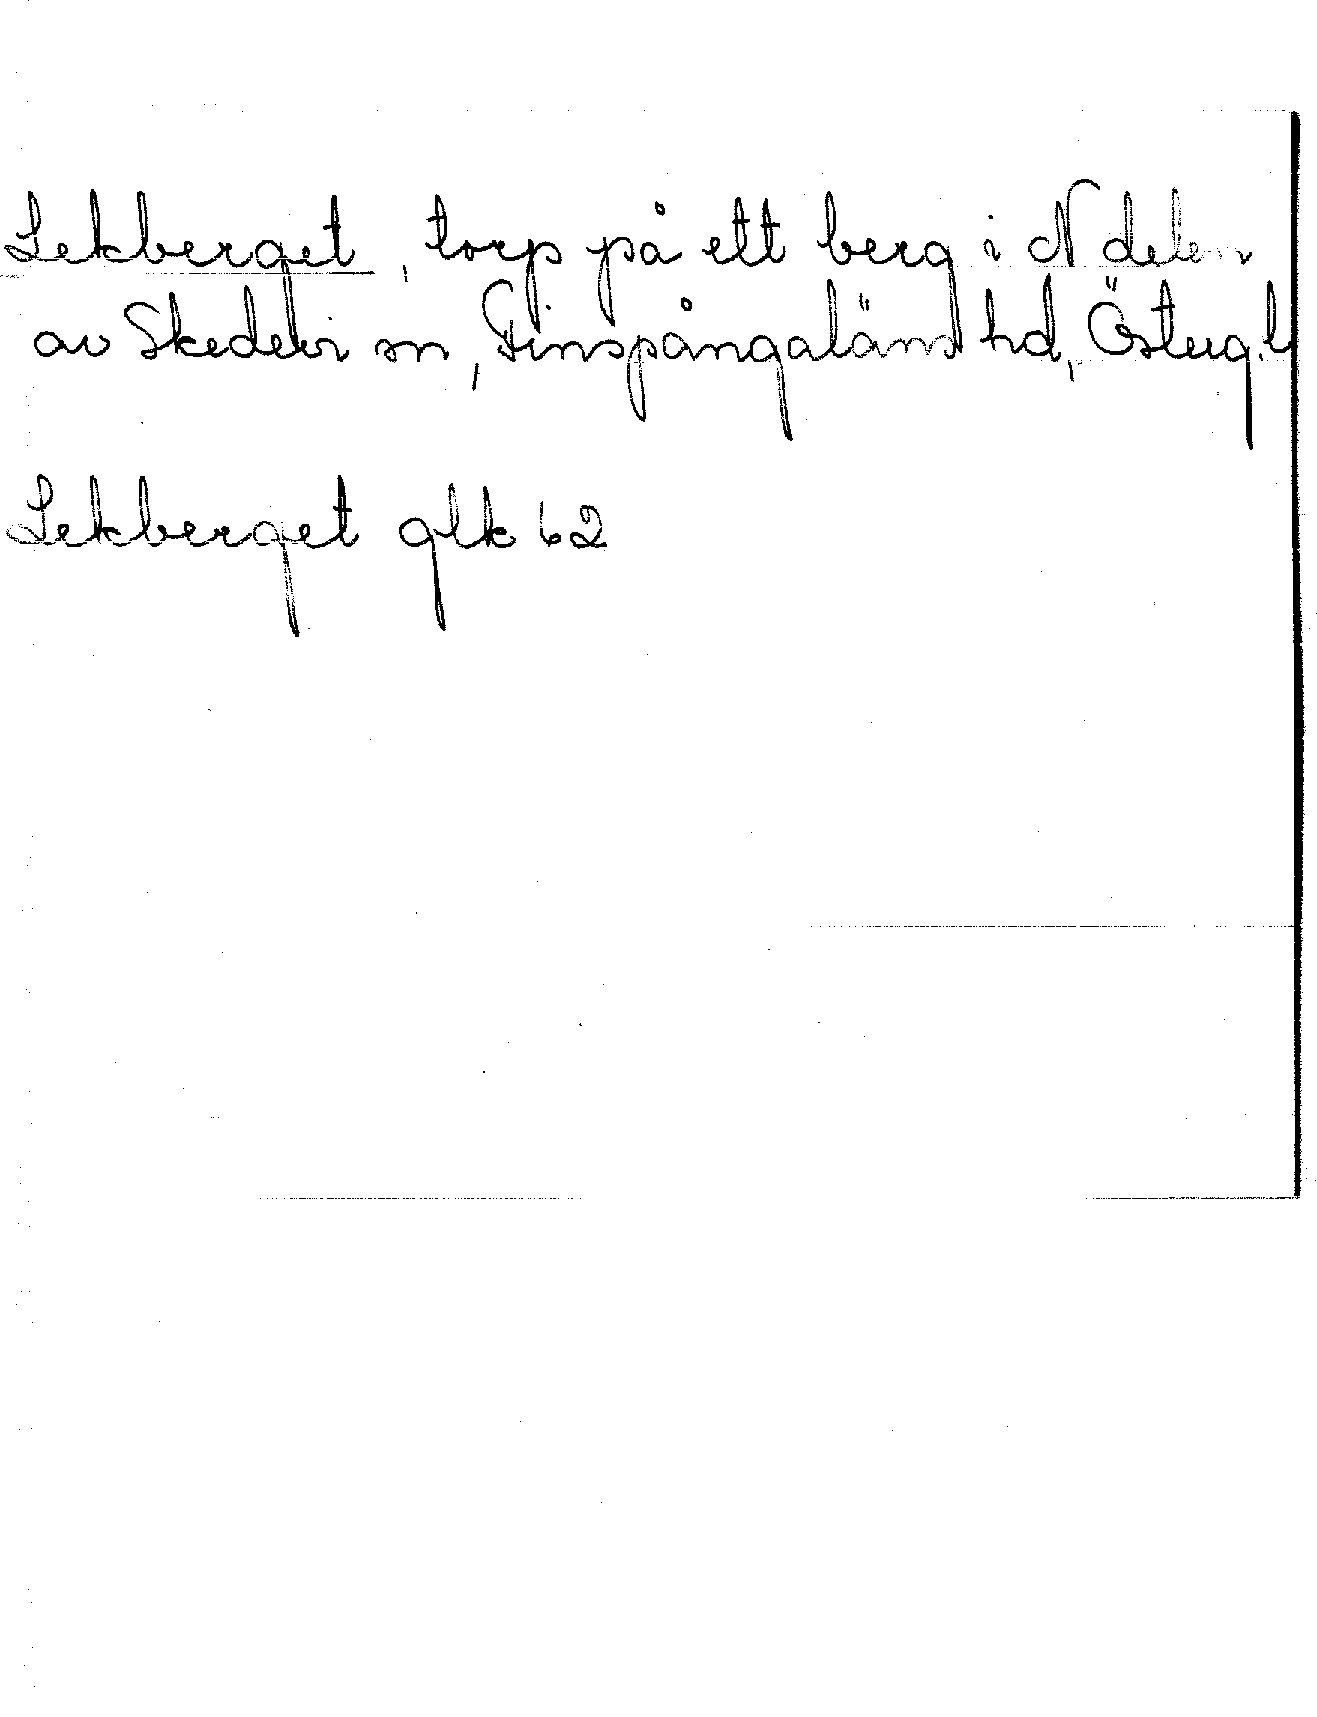 Lekberget, torp på ett berg i N delen
av Skedevi sn, Finspångaläns hd, Österg.l
Lekberget glk 62